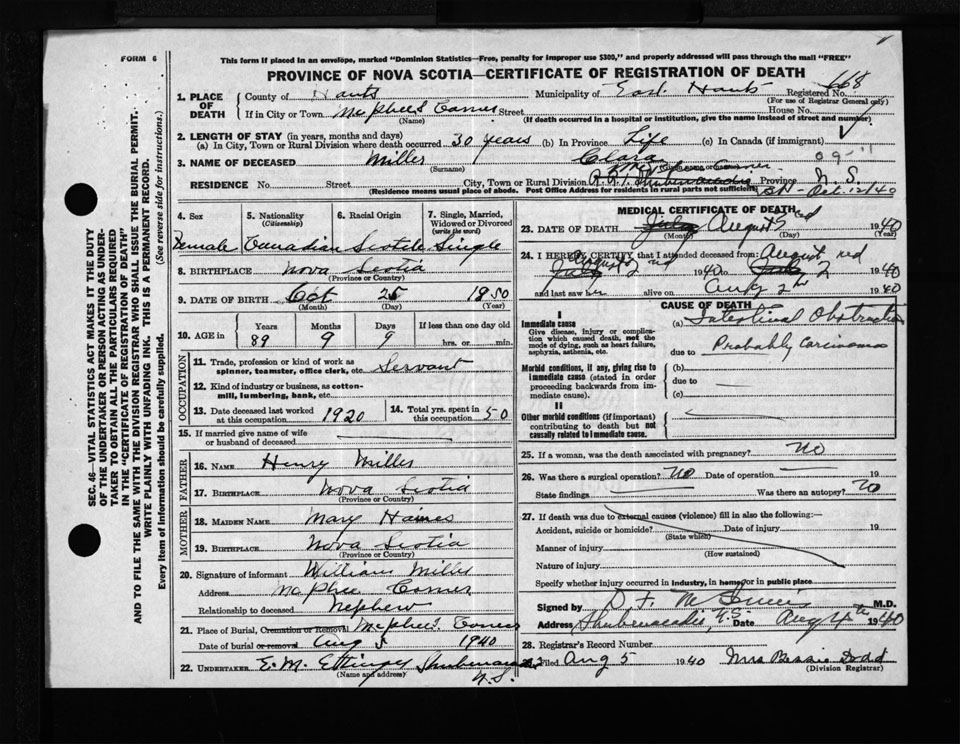 FORM 6
This form if placed in an envelope, marked "Dominion Statistics—Free, penalty for improper use $300," and properly addressed will pass through the mail "FREE"
PROVINCE OF NOVA SCOTIA—CERTIFICATE OF REGISTRATION OF DEATH
SEC. 46—VITAL STATISTICS ACT MAKES IT THE DUTY
OF THE UNDERTAKER OR PERSON ACTING AS UNDER-
TAKER TO OBTAIN ALL THE PARTICULARS REQUIRED
IN THE "CERTIFICATE OF REGISTRATION OF DEATH"
AND TO FILE THE SAME WITH THE DIVISION REGISTRAR WHO SHALL ISSUE THE BURIAL PERMIT.
WRITE PLAINLY WITH UNFADING INK. THIS IS A PERMANENT RECORD.
Every item of information should be carefully supplied. (See reverse side for instructions.)
1. PLACE OF DEATH
County of Hants Municipality of East Hants Registered No. 668
(For use of Registrar General only)
If in City or Town McPhees Corner Street House No.
(Name) (If death occurred in a hospital or institution, give the name instead of street and number)
2. LENGTH OF STAY (in years, months and days)
(a) In City, Town or Rural Division where death occurred 30 years (b) In Province Life (c) In Canada (if immigrant)
3. NAME OF DECEASED Miller Clara
(Surname)
RESIDENCE No. Street City, Town or Rural Division Province N.S.
(Residence means usual place of abode. Post Office Address for residents in rural parts not sufficient)
4. Sex 5. Nationality 6. Racial Origin 7. Single, Married,
(Citizenship) Widowed or Divorced
(write the word)
Female Canadian Scotch Single
8. BIRTHPLACE Nova Scotia
(Province or Country)
9. DATE OF BIRTH Oct 25 1850
(Month) (Day) (Year)
10. AGE in Years Months Days If less than one day old
89 9 9 hrs. or min.
OCCUPATION
11. Trade, profession or kind of work as
spinner, teamster, office clerk, etc. Servant
12. Kind of industry or business, as cotton-
mill, lumbering, bank, etc.
13. Date deceased last worked
at this occupation 1920
14. Total yrs. spent in
this occupation 50
15. If married give name of wife
or husband of deceased
FATHER
16. NAME Henry Miller
17. BIRTHPLACE Nova Scotia
(Province or Country)
MOTHER
18. MAIDEN NAME Mary Haines
19. BIRTHPLACE Nova Scotia
(Province or Country)
20. Signature of informant William Miller
Address McPhee Corner
Relationship to deceased Nephew
21. Place of Burial, Cremation or Removal McPhees Corner
Date of burial or removal Aug 5 1940
22. UNDERTAKER E. M. Ettinger Shubenacadie
(Name and address) N.S.
MEDICAL CERTIFICATE OF DEATH
23. DATE OF DEATH July August 1940
(Month) (Day) (Year)
24. I HEREBY CERTIFY that I attended deceased from: August 2nd
July 1940 to July 2 1940
and last saw her alive on Aug 2nd 1940
CAUSE OF DEATH
I
Immediate cause
Give disease, injury or complica-
tion which caused death, not the
mode of dying, such as heart failure,
asphyxia, asthenia, etc.
(a) Intestinal Obstruction
due to Probably carcinoma
Morbid conditions, if any, giving rise to
immediate cause (stated in order
proceeding backwards from im-
mediate cause).
(b)
due to
(c)
II
Other morbid conditions (if important)
contributing to death but not
causally related to immediate cause.
25. If a woman, was the death associated with pregnancy? no
26. Was there a surgical operation? no Date of operation 19
State findings Was there an autopsy? no
27. If death due to external causes (violence) fill in also the following:—
Accident, suicide or homicide? Date of injury 19
(State which)
Manner of injury
(How sustained)
Nature of injury
Specify whether injury occurred in industry, in home, or in public place
Signed by D. F. McInnis M.D.
Address Shubenacadie, N.S. Date Aug 4th 1940
28. Registrar's Record Number
Filed Aug 5 1940 Mrs Bessie Dodd
(Division Registrar)